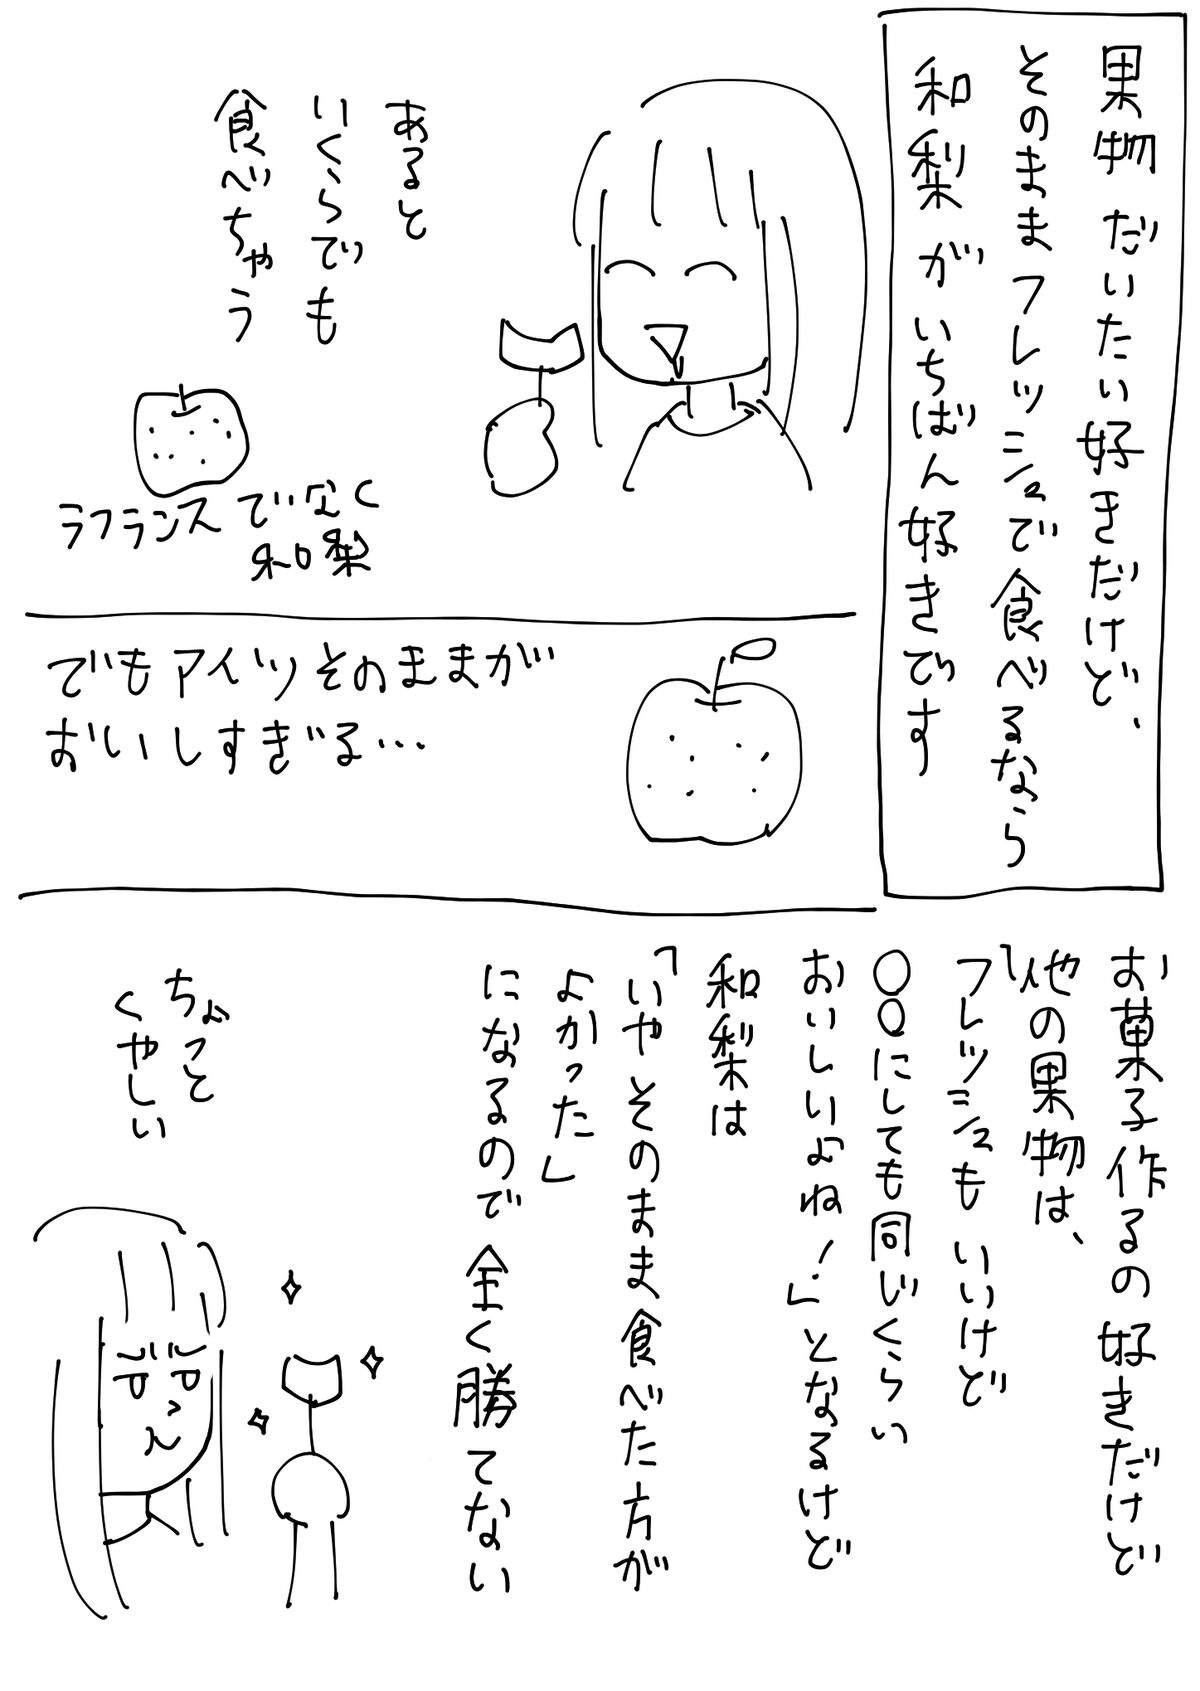 果物 だいたい好きだけど、
そのままフレッシュで食べるなら
和梨 がいちばん好きです
あると
いくらでも
食べちゃう
ラフランス でなく
和梨
でもアイツそのままが
おいしすぎる…
お菓子作るの好きだけど
「他の果物は、
フレッシュも いいけど
〇〇にしても同じくらい
おいしいよね!」となるけど
和梨は
「いや そのまま食べた方が
よかった」
になるので 全く勝てない
ちょっと
くやしい